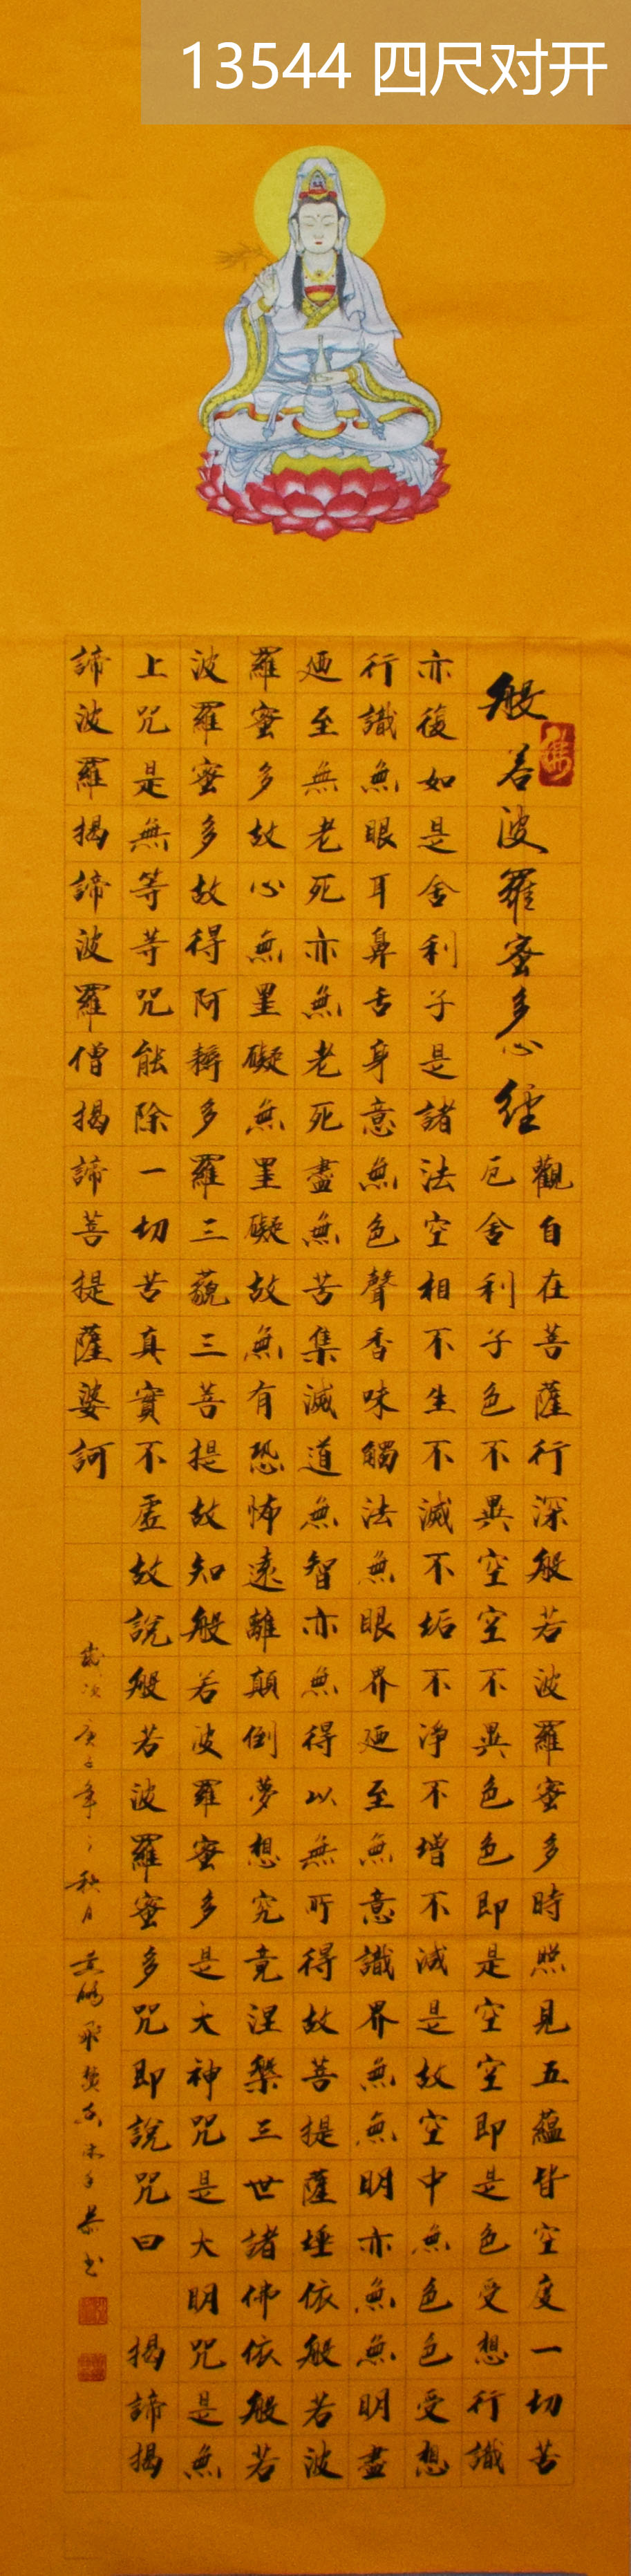 13544 四尺对开
般若波羅蜜多心經
觀自在菩薩行深般若波羅蜜多時照見五蘊皆空度一切苦
厄舍利子色不異空空不異色色即是空空即是色受想行識
亦復如是舍利子是諸法空相不生不滅不垢不淨不增不減是故空中無色色受想
行識無眼耳鼻舌身意無色聲香味觸法無眼界廼至無意識界無無明亦無無明盡
廼至無老死亦無老死盡無苦集滅道無智亦無得以無所得故菩提薩埵依般若波
羅蜜多故心無罣礙無罣礙故無有恐怖遠離顛倒夢想究竟涅槃三世諸佛依般若
波羅蜜多故得阿耨多羅三藐三菩提故知般若波羅蜜多是大神咒是大明咒是無
上咒是無等等咒能除一切苦真實不虛故說般若波羅蜜多咒即說咒曰 揭諦揭
諦波羅揭諦波羅僧揭諦菩提薩婆訶
歲次庚子年之秋月 恭书